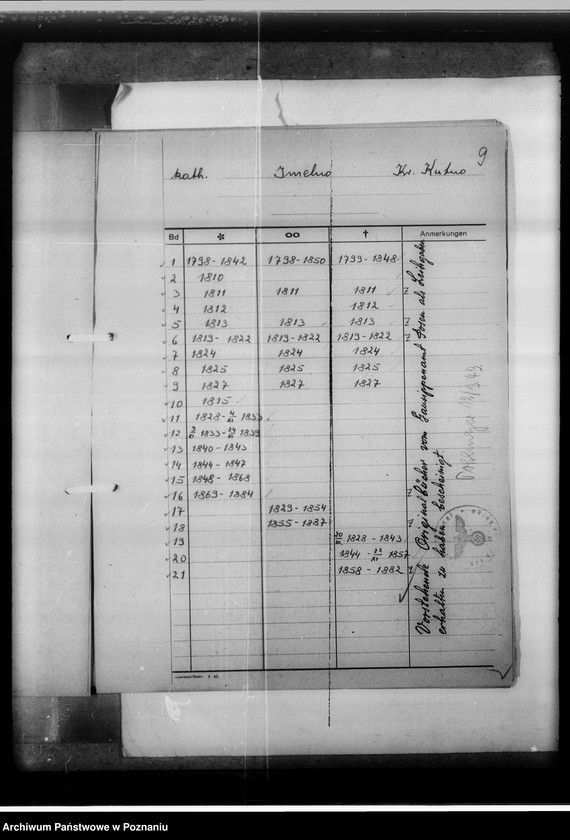 9
kath. Imelno Kr. Kutno
Bd * oo † Anmerkungen
1 1798-1842 1798-1850 1799-1848
2 1810
3 1811 1811 1811 Z
4 1812 1812
5 1813 1813 1813 Z
6 1819-1822 1819-1822 1819-1822 Z
7 1824 1824 1824
8 1825 1825 1825
9 1827 1827 1827
10 1815
11 1828-4/XI 1833
12 1833-24/XI 1839
13 1840-1843
14 1844-1847
15 1848-1868
16 1869-1884 Z
17 1829-1854
18 1855-1887 Z
19 1828-1843
20 1844-23/XI 1857
21 1858-1882 Z
Vorstehende Originalbücher vom Gausippenamt Posen als Leihgabe
erhalten zu haben bescheinigt.
Archiwum Państwowe w Poznaniu